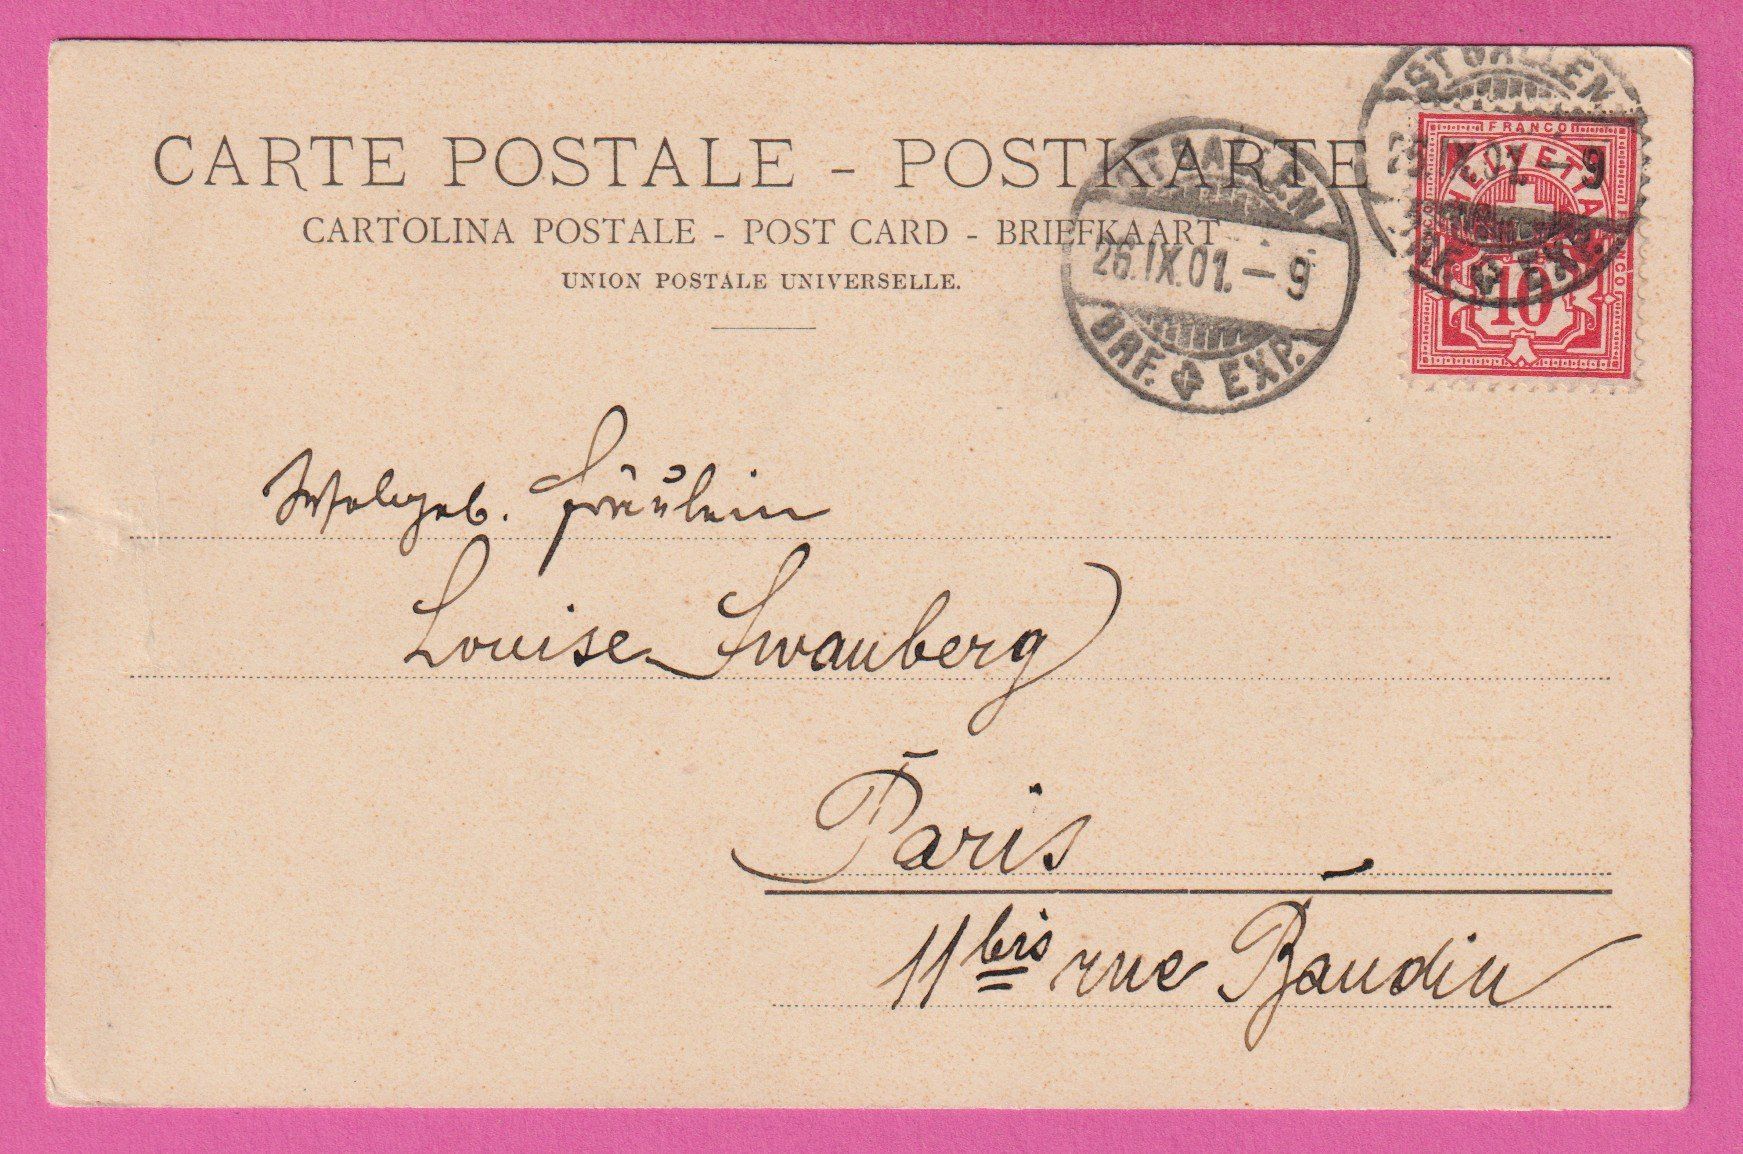 CARTE POSTALE – POSTKARTE
CARTOLINA POSTALE - POST CARD - BRIEFKAART
UNION POSTALE UNIVERSELLE.
ST. GALLEN
26.IX.01.–9
BRF. EXP.
ST. GALLEN
26.IX.01.–9
BRF. EXP.
FRANCO
HELVETIA
FRANCO
10
Wohlgeb. Fräulein
Louise Swanberg
Paris
11 bis rue Baudin